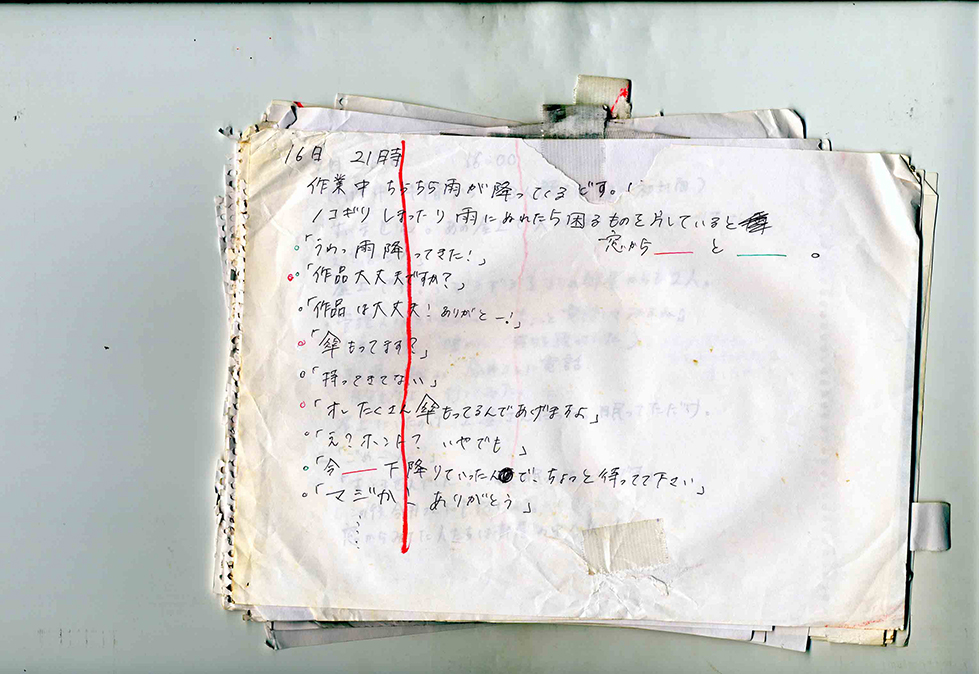 16日 21時
作業中ちらちら雨が降ってくるどす。
ノコギリしまったり雨にぬれたら困るものを片していると
窓から と 。
「うわっ雨降ってきた!」
「作品大丈夫ですか?」
「作品は大丈夫!ありがとー!」
「傘もってます?」
「持ってきてない」
「オレたくさん傘もってるんであげますよ」
「え?ホント? いやでも」
「今 下降りていったんで、ちょっと待ってて下さい」
「マジか、ありがとう」